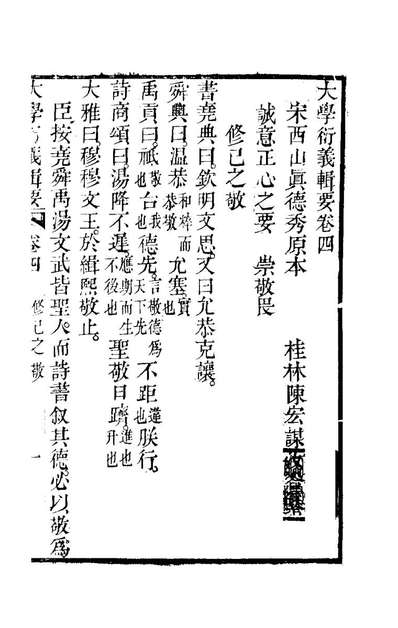 大學衍義輯要卷四
宋西山眞德秀原本
桂林陳宏謀
誠意正心之要 崇敬畏
修己之敬
書堯典曰。欽明文思。又曰允恭克讓。
舜典曰。溫恭和粹而恭敬允塞。實也
禹貢曰。祗敬也台我也德先。言敬德爲天下先不距違也朕行。
詩商頌曰。湯降不遲。應期而生不後也聖敬日躋。進也升也
大雅曰。穆穆文王。於緝熙敬止。
臣按堯舜禹湯文武皆聖人。而詩書叙其德。必以敬爲
大學衍義輯要 卷四 修己之敬 一